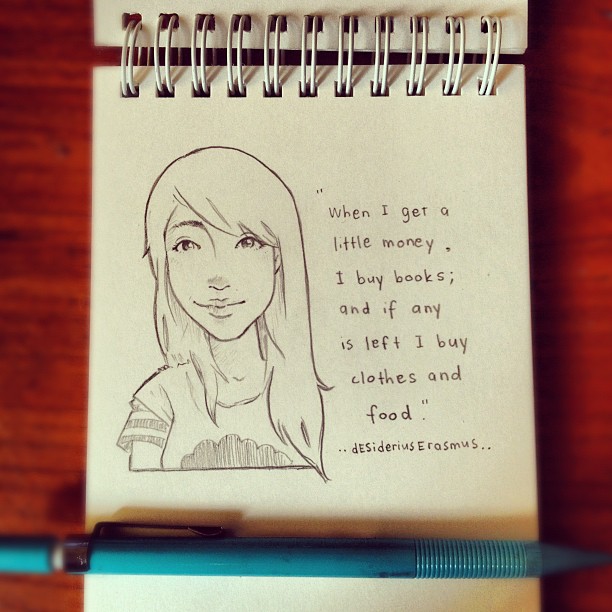 "When I get a
little money,
I buy books;
and if any
is left I buy
clothes and
food."
..dEsideriusErasmus..